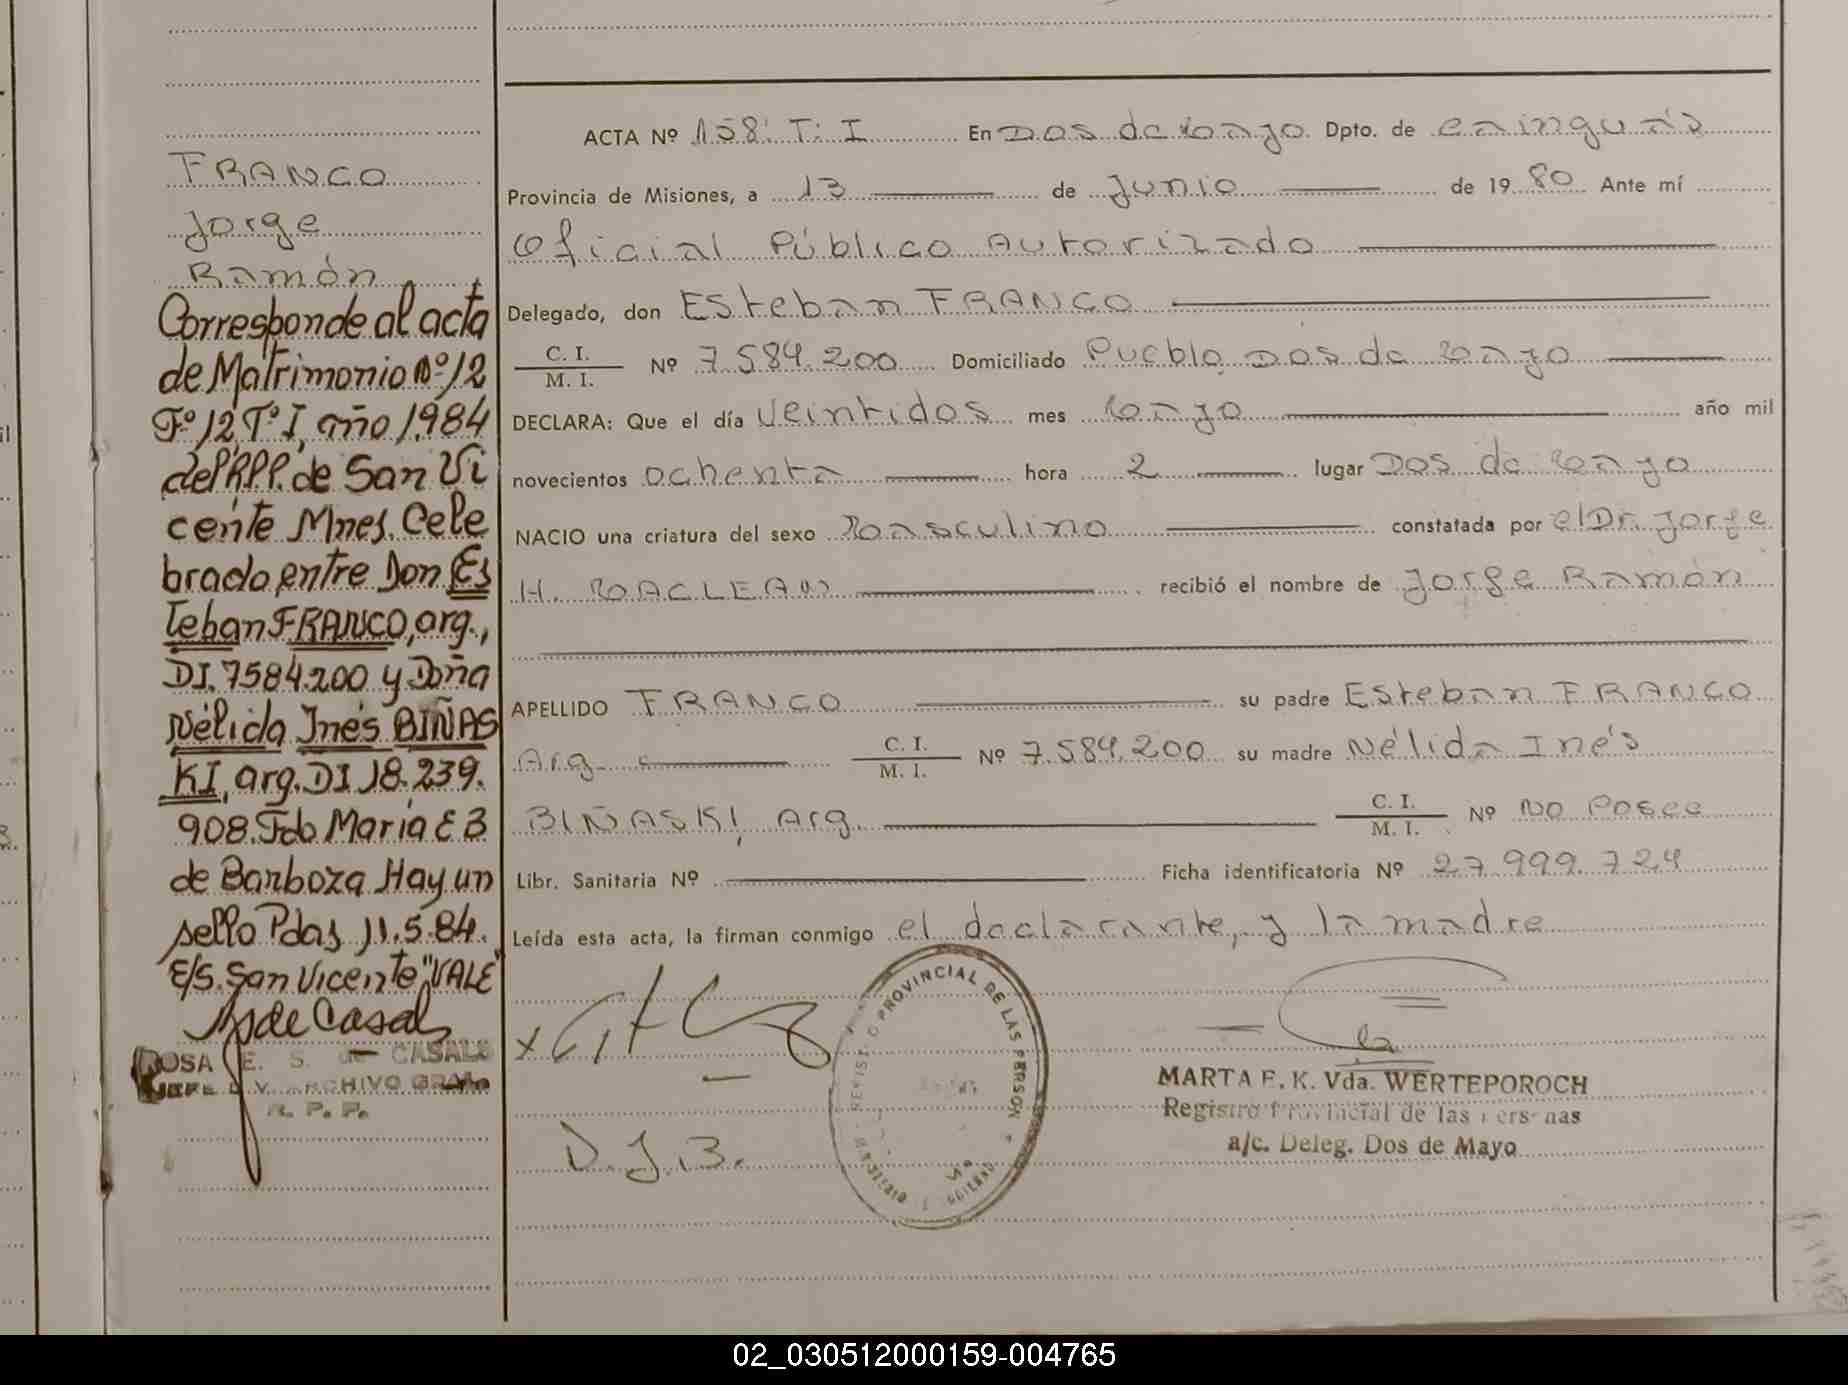 FRANCO
Jorge
Ramón
Corresponde al acta
de Matrimonio Nº 12
Fº 12, Tº I, año 1984
del R.P.P. de San Vi
cente Mnes. Cele
brado entre Don Es
teban FRANCO, arg.,
DI. 7584.200 y Doña
Nélida Inés BIÑAS
KI, arg. DI 18.239.
908. Fdo María E B
de Barboza Hay un
sello Pdas 11.5.84.
E/S. San Vicente "VALE"
ROSA E. S. de CASALS
JEFE DIV. ARCHIVO GRAL.
R. P. P.
ACTA Nº 158: T: I En Dos de Mayo Dpto. de Cainguás
Provincia de Misiones, a 13 de Junio de 1980 Ante mí
Oficial Público Autorizado
Delegado, don Esteban FRANCO
C. I.
M. I. Nº 7.584.200 Domiciliado Pueblo Dos de Mayo
DECLARA: Que el día Veintidos mes Mayo año mil
novecientos ochenta hora 2 lugar Dos de Mayo
NACIO una criatura del sexo Masculino constatada por el Dr. Jorge
H. MACLEAN recibió el nombre de Jorge Ramón
APELLIDO FRANCO su padre Esteban FRANCO
Arg. C. I.
M. I. Nº 7.584.200 su madre Nélida Inés
BIÑASKI, Arg. C. I.
M. I. Nº No Posee
Libr. Sanitaria Nº Ficha identificatoria Nº 27.999.724
Leída esta acta, la firman conmigo el declarante, y la madre
REGISTRO PROVINCIAL DE LAS PERSON
N. J. B.
MARTA E. K. Vda. WERTEPOROCH
Registro Provincial de las Personas
a/c. Deleg. Dos de Mayo
02_030512000159-004765